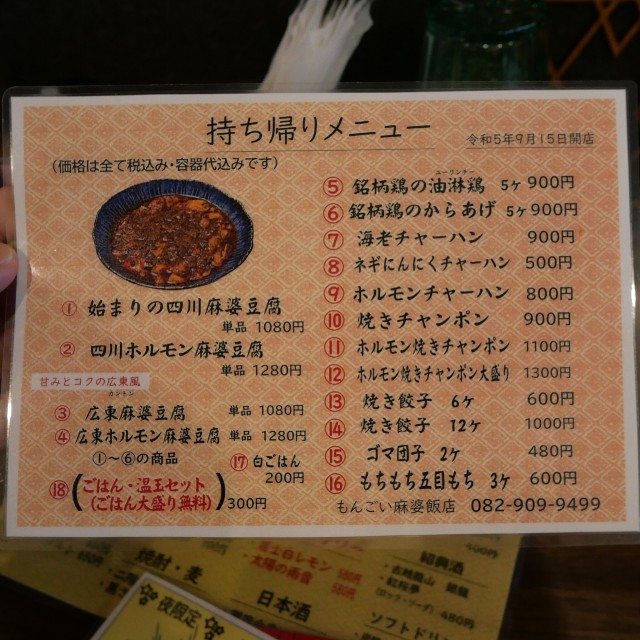 持ち帰りメニュー
令和5年9月15日開店
(価格は全て税込み・容器代込みです)
① 始まりの四川麻婆豆腐
単品 1080円
② 四川ホルモン麻婆豆腐
単品 1280円
甘みとコクの広東風
カントン
③ 広東麻婆豆腐 単品 1080円
④ 広東ホルモン麻婆豆腐 単品 1280円
①〜⑥の商品
⑱(ごはん・温玉セット
(ごはん大盛り無料)) 300円
⑰ 白ごはん
200円
ユーリンチー
⑤ 銘柄鶏の油淋鶏 5ヶ 900円
⑥ 銘柄鶏のからあげ 5ヶ 900円
⑦ 海老チャーハン 900円
⑧ ネギにんにくチャーハン 500円
⑨ ホルモンチャーハン 800円
⑩ 焼きチャンポン 900円
⑪ ホルモン焼きチャンポン 1100円
⑫ ホルモン焼きチャンポン大盛り 1300円
⑬ 焼き餃子 6ヶ 600円
⑭ 焼き餃子 12ヶ 1000円
⑮ ゴマ団子 2ヶ 480円
⑯ もちもち五目もち 3ヶ 600円
もんごい麻婆飯店 082-909-9499
焼酎・麦
富士白レモン 580円
・太陽の南音 580円
紹興酒
・古越龍山
(ロック・ソーダ) 480円
日本酒
ソフトドリ
夜限定